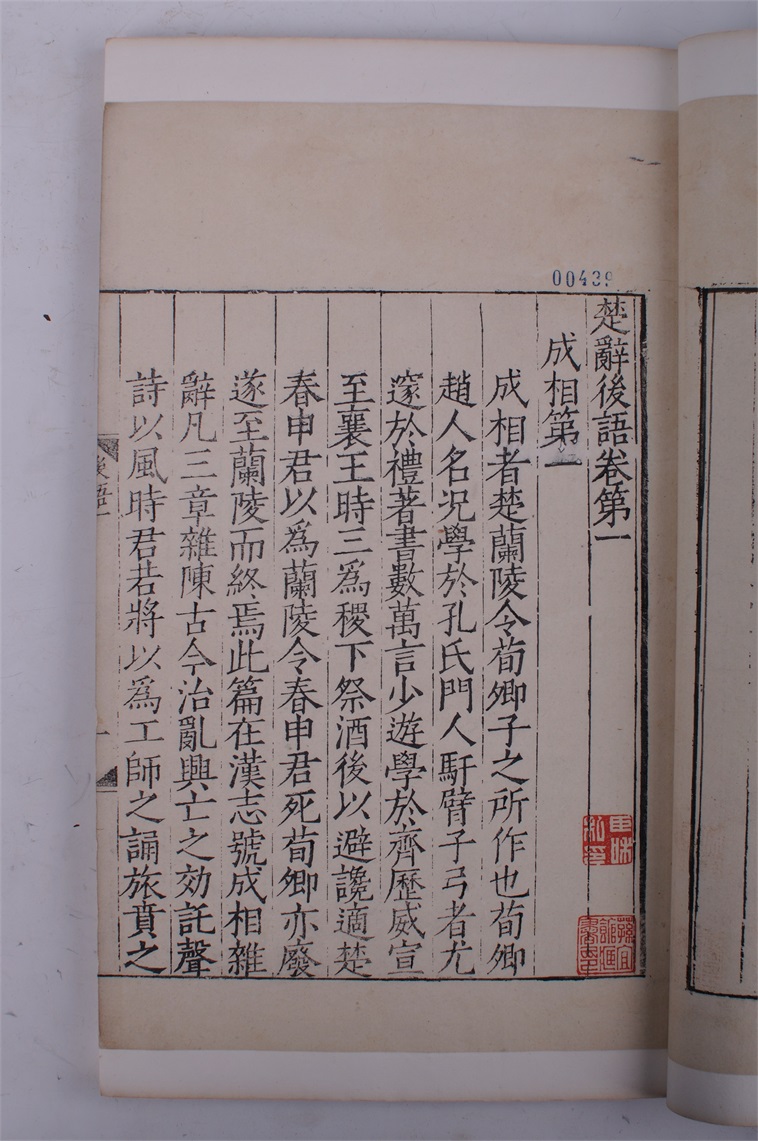 00439
楚辭後語卷第一
成相第一
成相者楚蘭陵令荀卿子之所作也荀卿
趙人名况學於孔氏門人馯臂子弓者尤
邃於禮著書數萬言少遊學於齊歷威宣
至襄王時三爲稷下祭酒後以避讒適楚
春申君以爲蘭陵令春申君死荀卿亦廢
遂至蘭陵而終焉此篇在漢志號成相雜
辭凡三章雜陳古今治亂興亡之効託聲
詩以風時君若將以爲工師之誦旅賁之